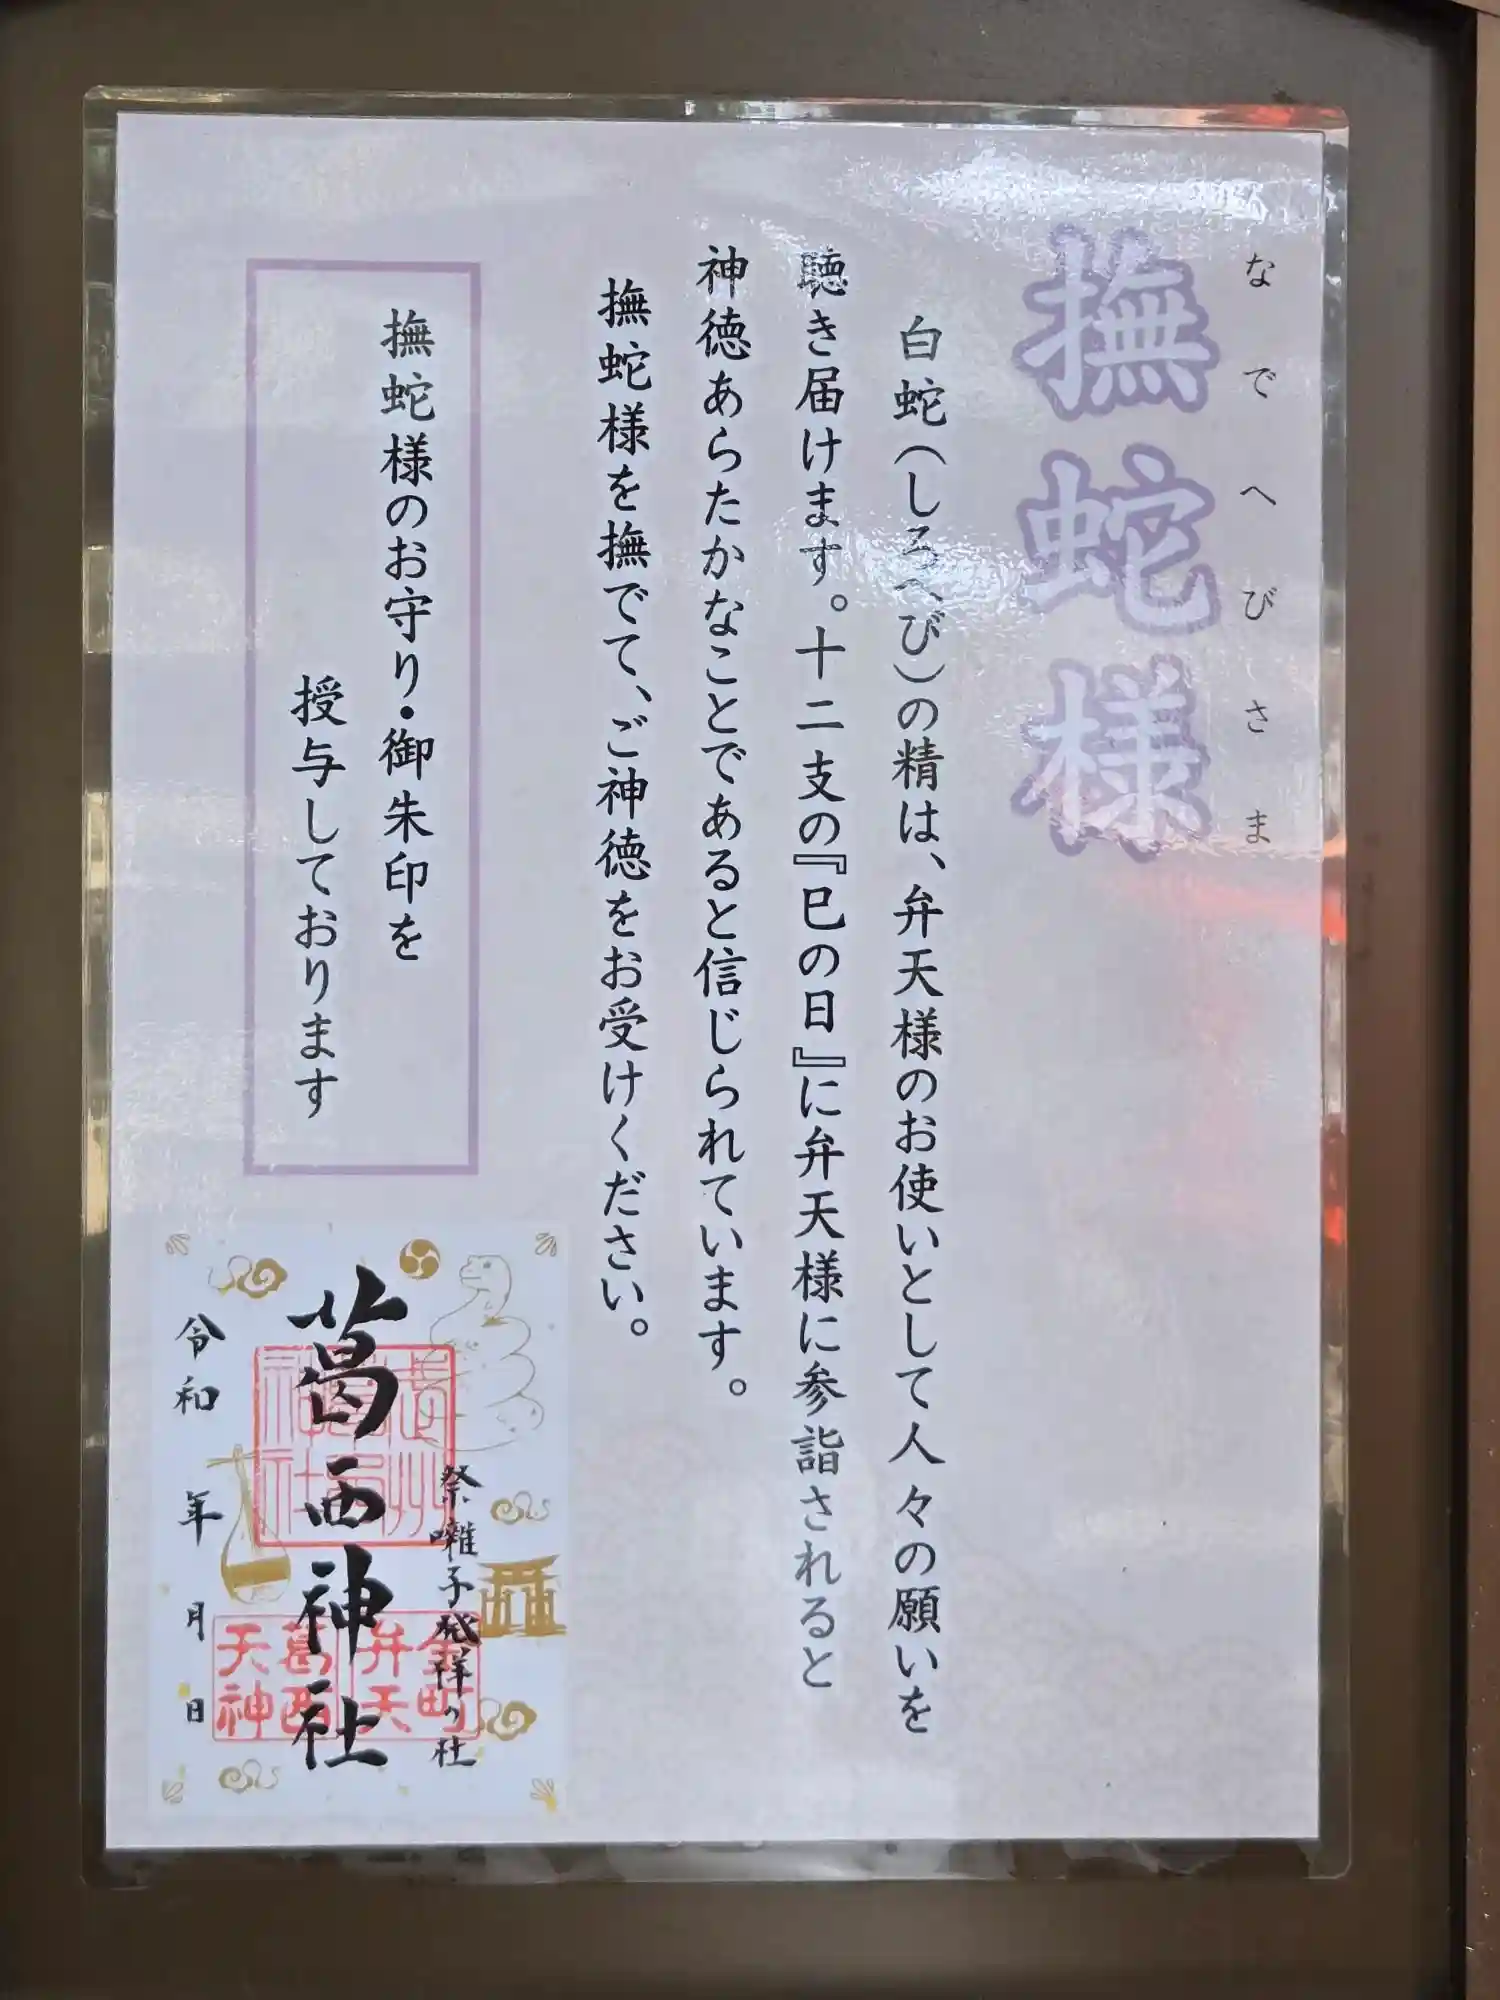 なでへびさま
撫蛇様
白蛇(しろへび)の精は、弁天様のお使いとして人々の願いを
聴き届けます。十二支の『巳の日』に弁天様に参詣されると
神徳あらたかなことであると信じられています。
撫蛇様を撫でて、ご神徳をお受けください。
撫蛇様のお守り・御朱印を
授与しております
祭囃子発祥の社
葛西神社
金町
弁天
葛西
天神
令和 年 月 日